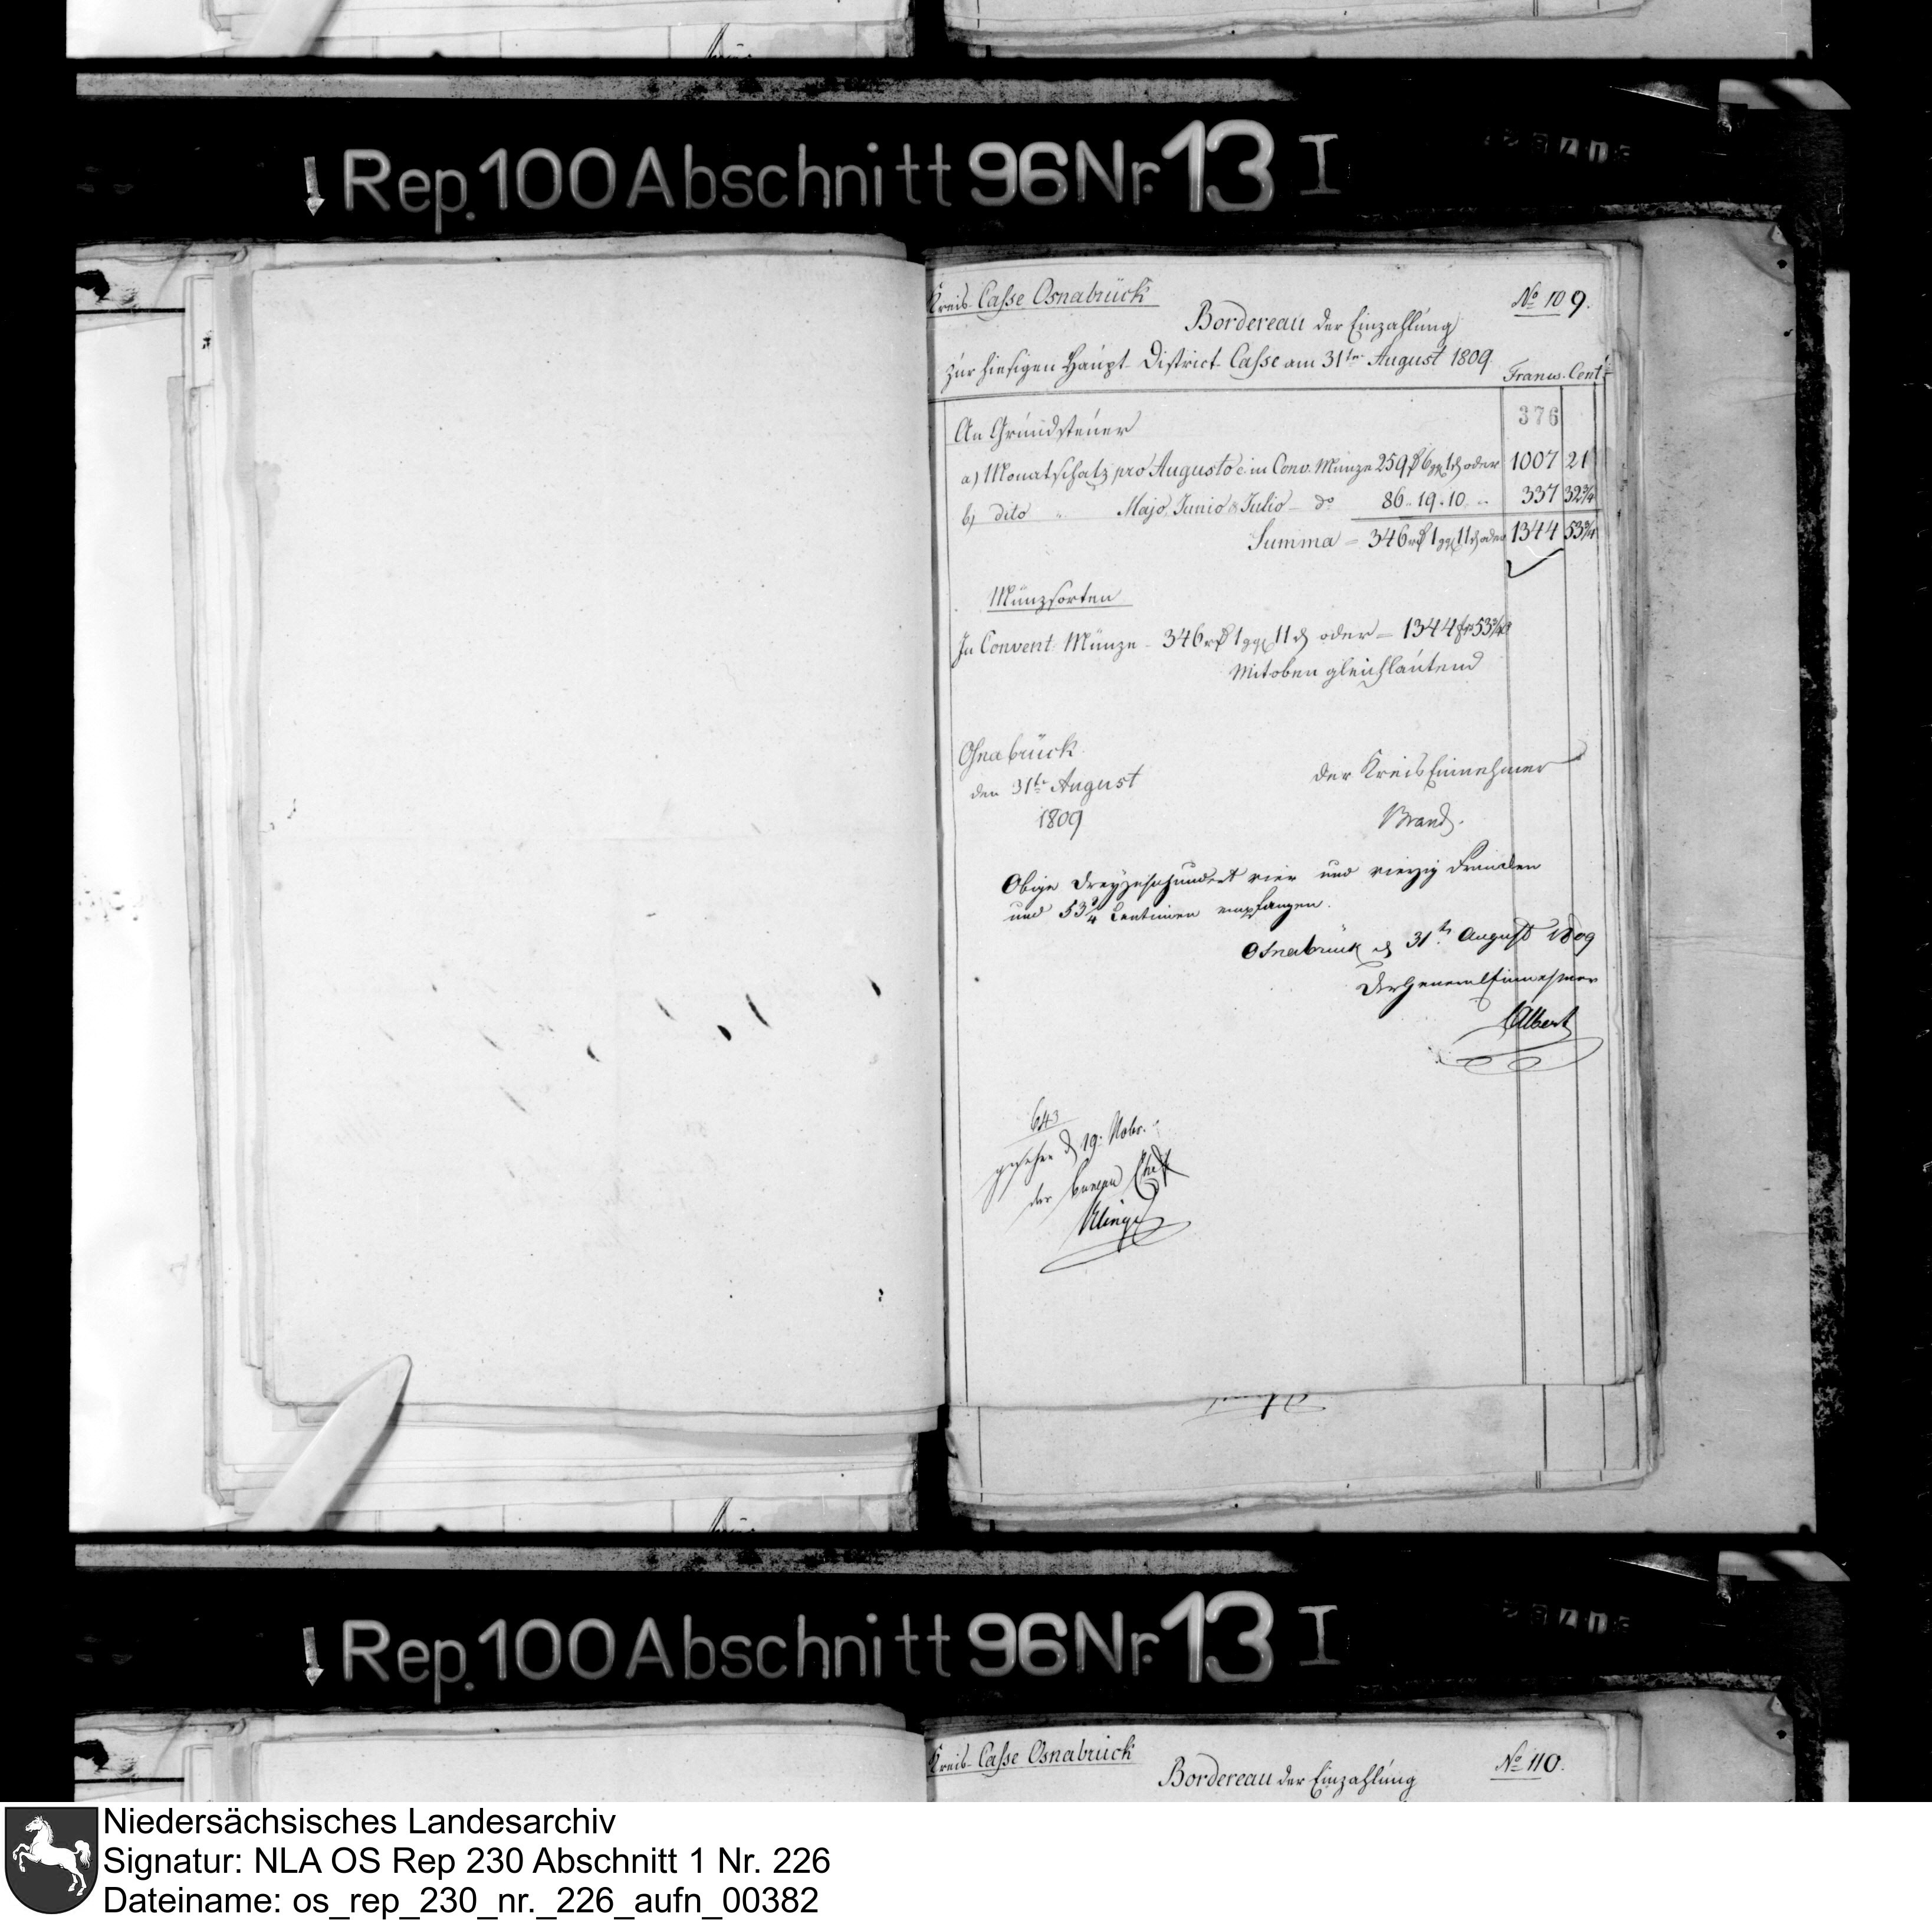 Rep. 100 Abschnitt 96 Nr. 13 I
Kreis-Casse Osnabrück
No 109.
Bordereau der Einzahlung
zur hiesigen Haupt-District-Casse am 31ten August 1809.
Francs. Cent.
376
An Grundsteuer
a) Monatschatz pro Augusto c. in Conv. Münze 259 rℓ 6 ggl 1 ₰ oder 1007 21
b) dito " Majo, Junio & Julio - do 86 .. 19 .. 10 .. 337 32 3/4
Summa = 346 rℓ 1 ggl 11 ₰ oder 1344 53 3/4
Münzsorten
In Convent. Münze - 346 rℓ 1 ggl 11 ₰ oder = 1344 frs 53 3/4
Mit oben gleichlautend
Osnabrück
den 31te August
1809
der Kreis Einnehmer
Brand.
Obige Dreyzehnhundert vier und vierzig Francken
und 53 3/4 Centimen empfangen.
Osnabrück d 31ten August 1809
Der General Einnehmer
Albert
643
gesehen d 19. Nobr.
der Bureau Chef
Klinge
Rep. 100 Abschnitt 96 Nr. 13 I
Kreis-Casse Osnabrück
No 110.
Bordereau der Einzahlung
Niedersächsisches Landesarchiv
Signatur: NLA OS Rep 230 Abschnitt 1 Nr. 226
Dateiname: os_rep_230_nr._226_aufn_00382